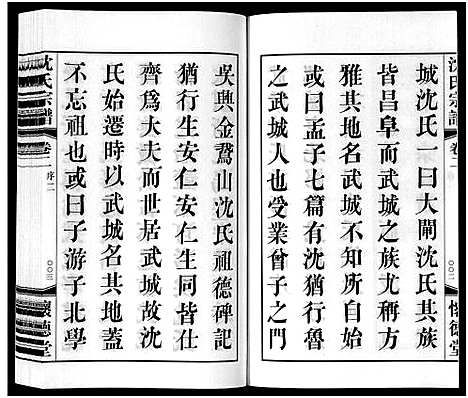 沈氏宗譜
卷二
〇〇二
懷德堂
城沈氏一曰大閘沈氏其族
皆昌阜而武城之族尤稱方
雅其地名武城不知所自始
或曰孟子七篇有沈猶行魯
之武城人也受業曾子之門
吳興金鵞山沈氏祖德碑記
猶行生安仁安仁生同皆仕
齊爲大夫而世居武城故沈
氏始遷時以武城名其地蓋
不忘祖也或曰子游子北學
沈氏宗譜
卷二
序二
〇〇三
懷德堂